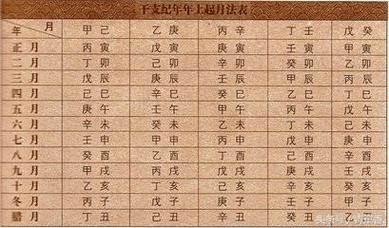 干支纪年年上起月法表
年 月 甲己 乙庚 丙辛 丁壬 戊癸
正月 丙寅 戊寅 庚寅 壬寅 甲寅
二月 丁卯 己卯 辛卯 癸卯 乙卯
三月 戊辰 庚辰 壬辰 甲辰 丙辰
四月 己巳 辛巳 癸巳 乙巳 丁巳
五月 庚午 壬午 甲午 丙午 戊午
六月 辛未 癸未 乙未 丁未 己未
七月 壬申 甲申 丙申 戊申 庚申
八月 癸酉 乙酉 丁酉 己酉 辛酉
九月 甲戌 丙戌 戊戌 庚戌 壬戌
十月 乙亥 丁亥 己亥 辛亥 癸亥
冬月 丙子 戊子 庚子 壬子 甲子
腊月 丁丑 己丑 辛丑 癸丑 乙